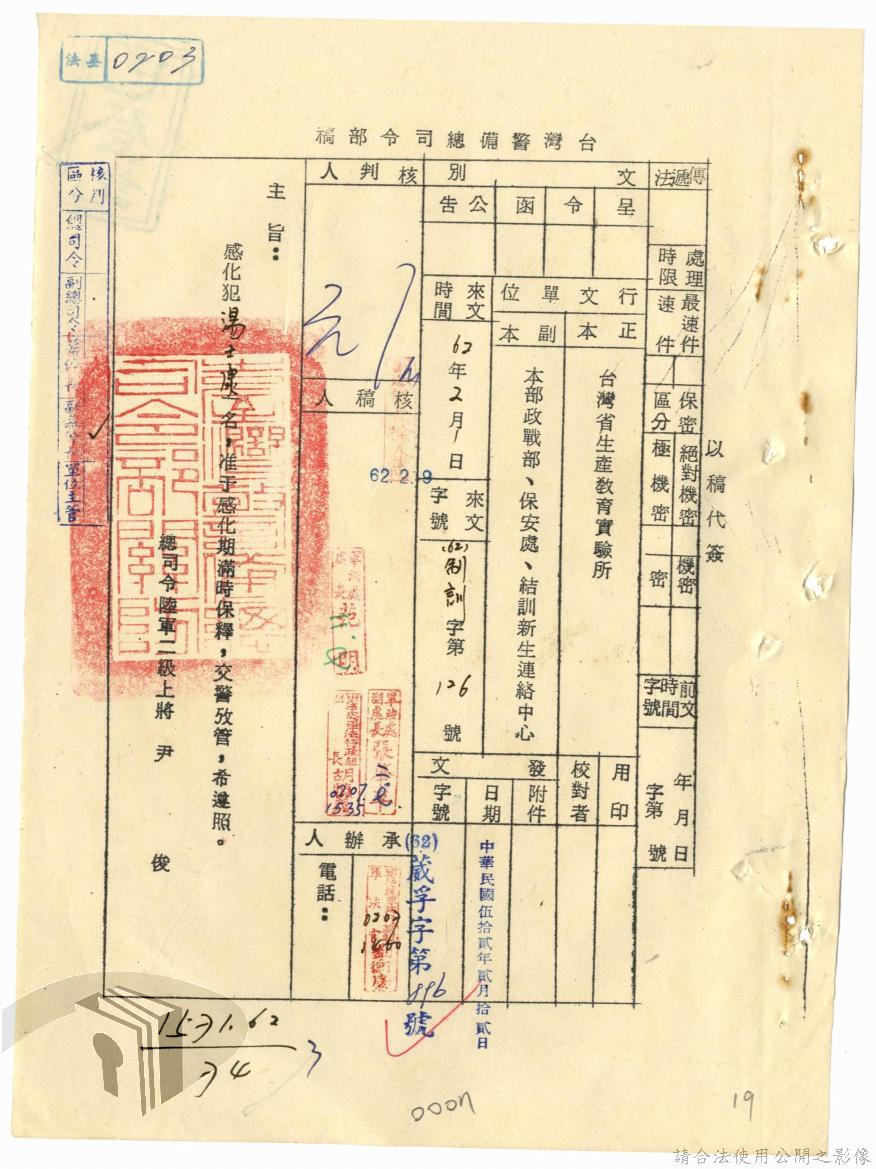 法基 0203
台灣警備總司令部稿
以稿代簽
傳遞法
處理時限
最速件
速件
保密區分
絕對機密
極機密
機密
密
前文時間字號
年月日
字第 號
文別
呈
令
函
公告
行文單位
正本
台灣省生產教育實驗所
副本
本部政戰部、保安處、結訓新生連絡中心
來文時間
62年2月1日
來文字號
(62)制訓字第126號
用印
校對者
發文
附件
日期
中華民國伍拾貳年貳月拾貳日
字號
(62)葳孚字第896號
核判人
核稿人
62.2.9
軍法處
副處長
0207
1535
承辦人
電話：
0207
主旨：
感化犯湯士康一名，准于感化期滿時保釋，交警攷管，希遵照。
總司令陸軍二級上將 尹 俊
核判區分
總司令
副總司令
單位主管
✓
1571.62
74
3
19
請合法使用公開之影像